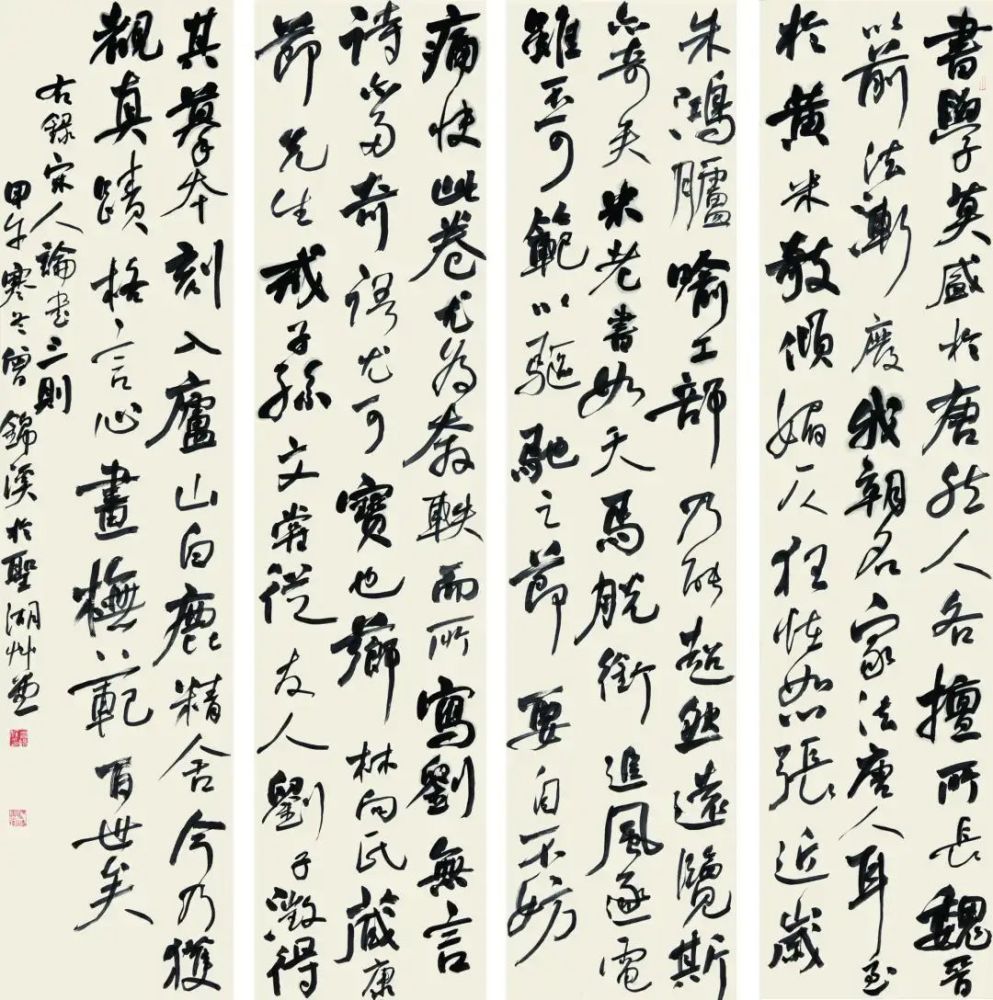 書學莫盛於唐然人各擅所長魏晉
以前法漸廢我朝名家法唐人耳至
於黃米敧傾媚仄狂怪如張近歲
朱鴻臚喻工部乃能超然遠覽斯
亦奇矣米老書如天馬脫銜追風逐電
雖不可範以驅馳之節要自不妨
痛快此卷尤為奔軼而所寫劉無言
詩亦多奇語尤可寶也薌林向氏藏康
節先生戒子孫文嘗從友人劉子澂得
其摹本刻入廬山白鹿精舍今乃獲
觀真蹟格言心畫橅範百世矣
右錄宋人論書三則
甲午寒冬曾錦溪於聖湖艸堂